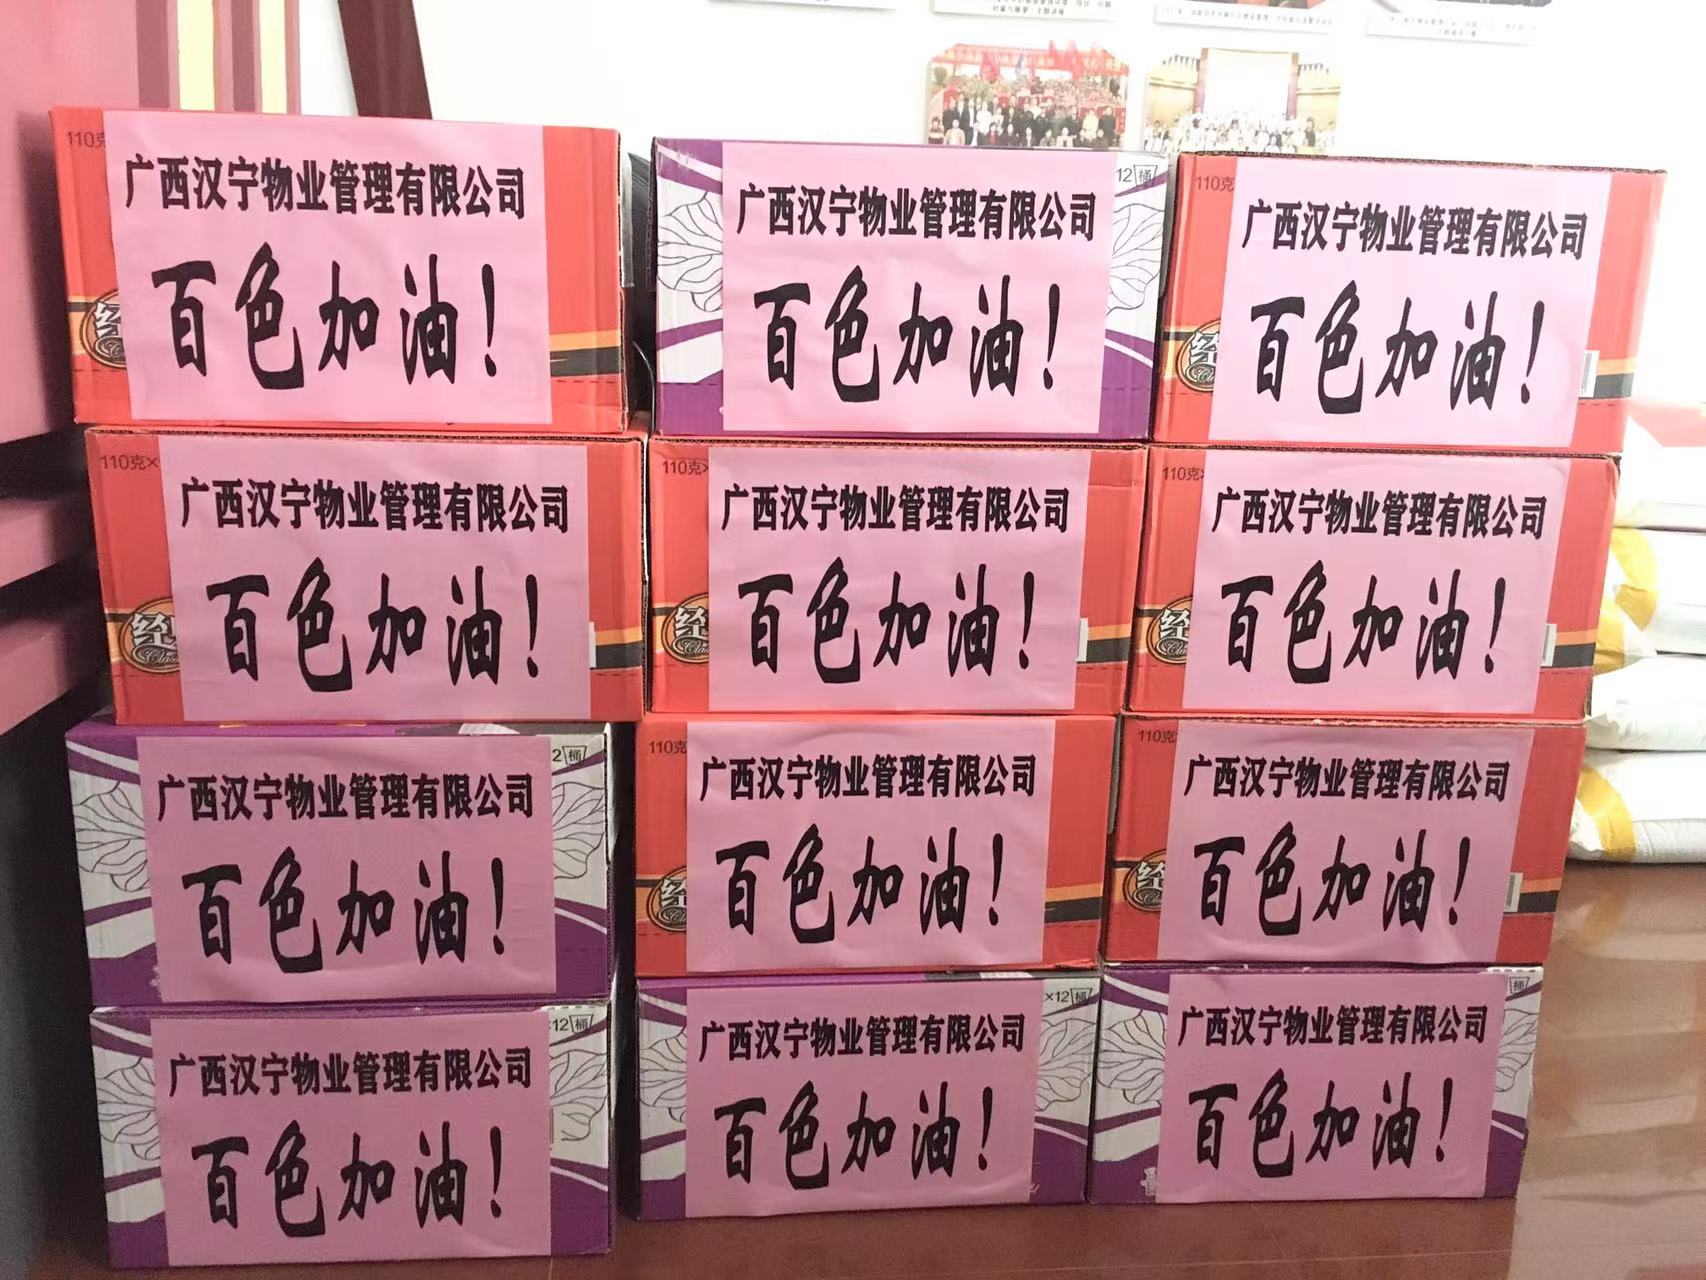 110克
广西汉宁物业管理有限公司
百色加油！
经
广西汉宁物业管理有限公司
百色加油！
12桶
110克
广西汉宁物业管理有限公司
百色加油！
110克×
广西汉宁物业管理有限公司
百色加油！
经
110克×
广西汉宁物业管理有限公司
百色加油！
经
110克×
广西汉宁物业管理有限公司
百色加油！
经
广西汉宁物业管理有限公司
百色加油！
2桶
110克
广西汉宁物业管理有限公司
百色加油！
经
110克
广西汉宁物业管理有限公司
百色加油！
经
广西汉宁物业管理有限公司
百色加油！
×12桶
广西汉宁物业管理有限公司
百色加油！
×12桶
广西汉宁物业管理有限公司
百色加油！
桶